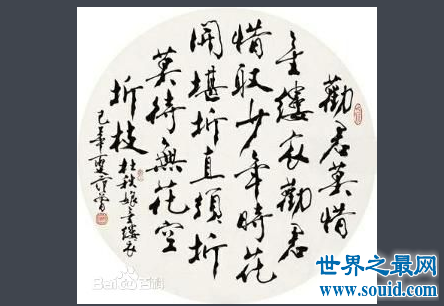 勸君莫惜
金縷衣勸君
惜取少年時花
開堪折直須折
莫待無花空
折枝
杜秋娘金縷衣
Bai百科
世界之最网
www.souid.com